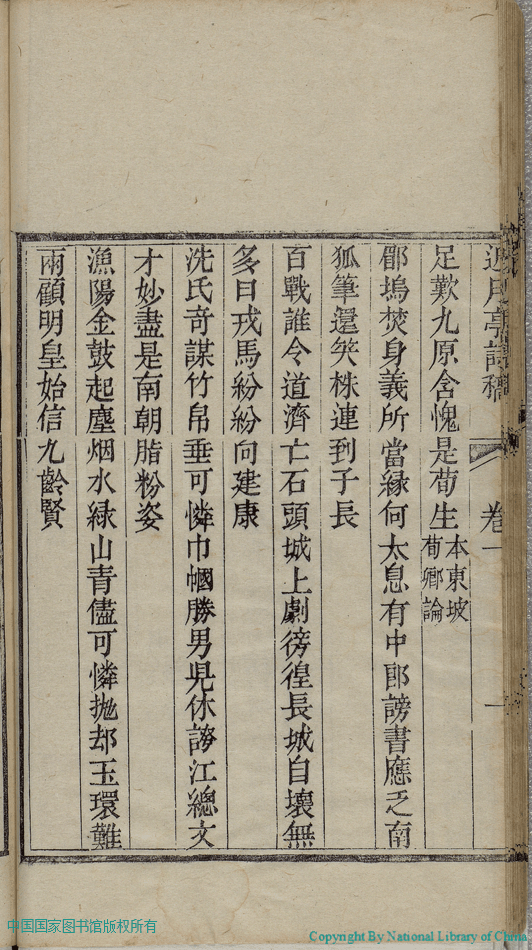 月亭詩稿 卷一 一
足歎九原含愧是荀生本東坡荀卿論
郿塢焚身義所當緣何太息有中郎謗書應乏南
狐筆還笑株連到子長
百戰誰令道濟亡石頭城上劇徬徨長城自壞無
多日戎馬紛紛向建康
洗氏奇謀竹帛垂可憐巾幗勝男兒休誇江總文
才妙盡是南朝脂粉姿
漁陽金鼓起塵烟水綠山青儘可憐拋却玉環難
兩顧明皇始信九齡賢
中国国家图书馆版权所有
Copyright By National Library of China